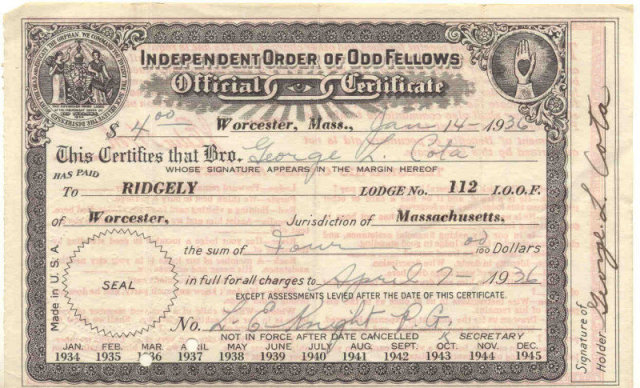 INDEPENDENT ORDER OF ODD FELLOWS
Official Certificate
$ 4.00 Worcester, Mass., Jan 14 - 1936
This Certifies that Bro. George L. Cota
WHOSE SIGNATURE APPEARS IN THE MARGIN HEREOF
HAS PAID
To RIDGELY LODGE No. 112 I.O.O.F.
of Worcester, Jurisdiction of Massachusetts.
the sum of Four 00/100 Dollars
in full for all charges to April 7 - 1936
EXCEPT ASSESSMENTS LEVIED AFTER THE DATE OF THIS CERTIFICATE.
SEAL
No. L. E. Knight
NOT IN FORCE AFTER DATE CANCELLED SECRETARY
JAN. FEB. MAR. APRIL MAY JUNE JULY AUG. SEPT. OCT. NOV. DEC.
1934 1935 1936 1937 1938 1939 1940 1941 1942 1943 1944 1945
Made in U.S.A.
Signature of
Holder George L. Cota